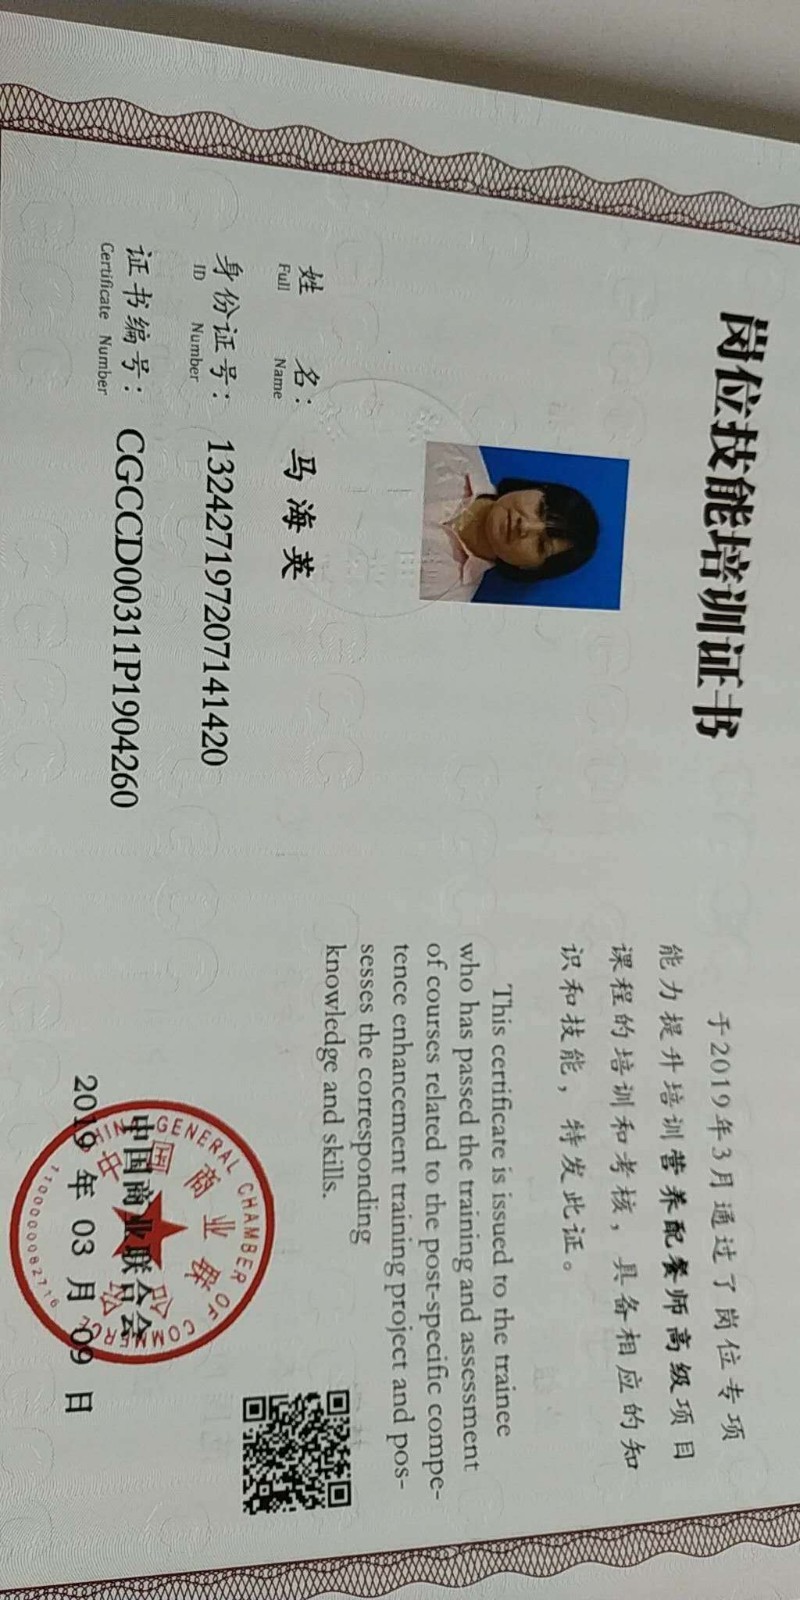 岗位技能培训证书
姓 名：马海英
Full Name
身份证号：132427197207141420
ID Number
证书编号：CGCCD00311P1904260
Certificate Number
于2019年3月通过了岗位专项
能力提升培训营养配餐师高级项目
课程的培训和考核，具备相应的知
识和技能，特发此证。
This certificate is issued to the trainee
who has passed the training and assessment
of courses related to the post-specific compe-
tence enhancement training project and pos-
sesses the corresponding
knowledge and skills.
中国商业联合会
2019 年 03 月 09 日
CHINA GENERAL CHAMBER OF COMMERCE
中国商业联合会